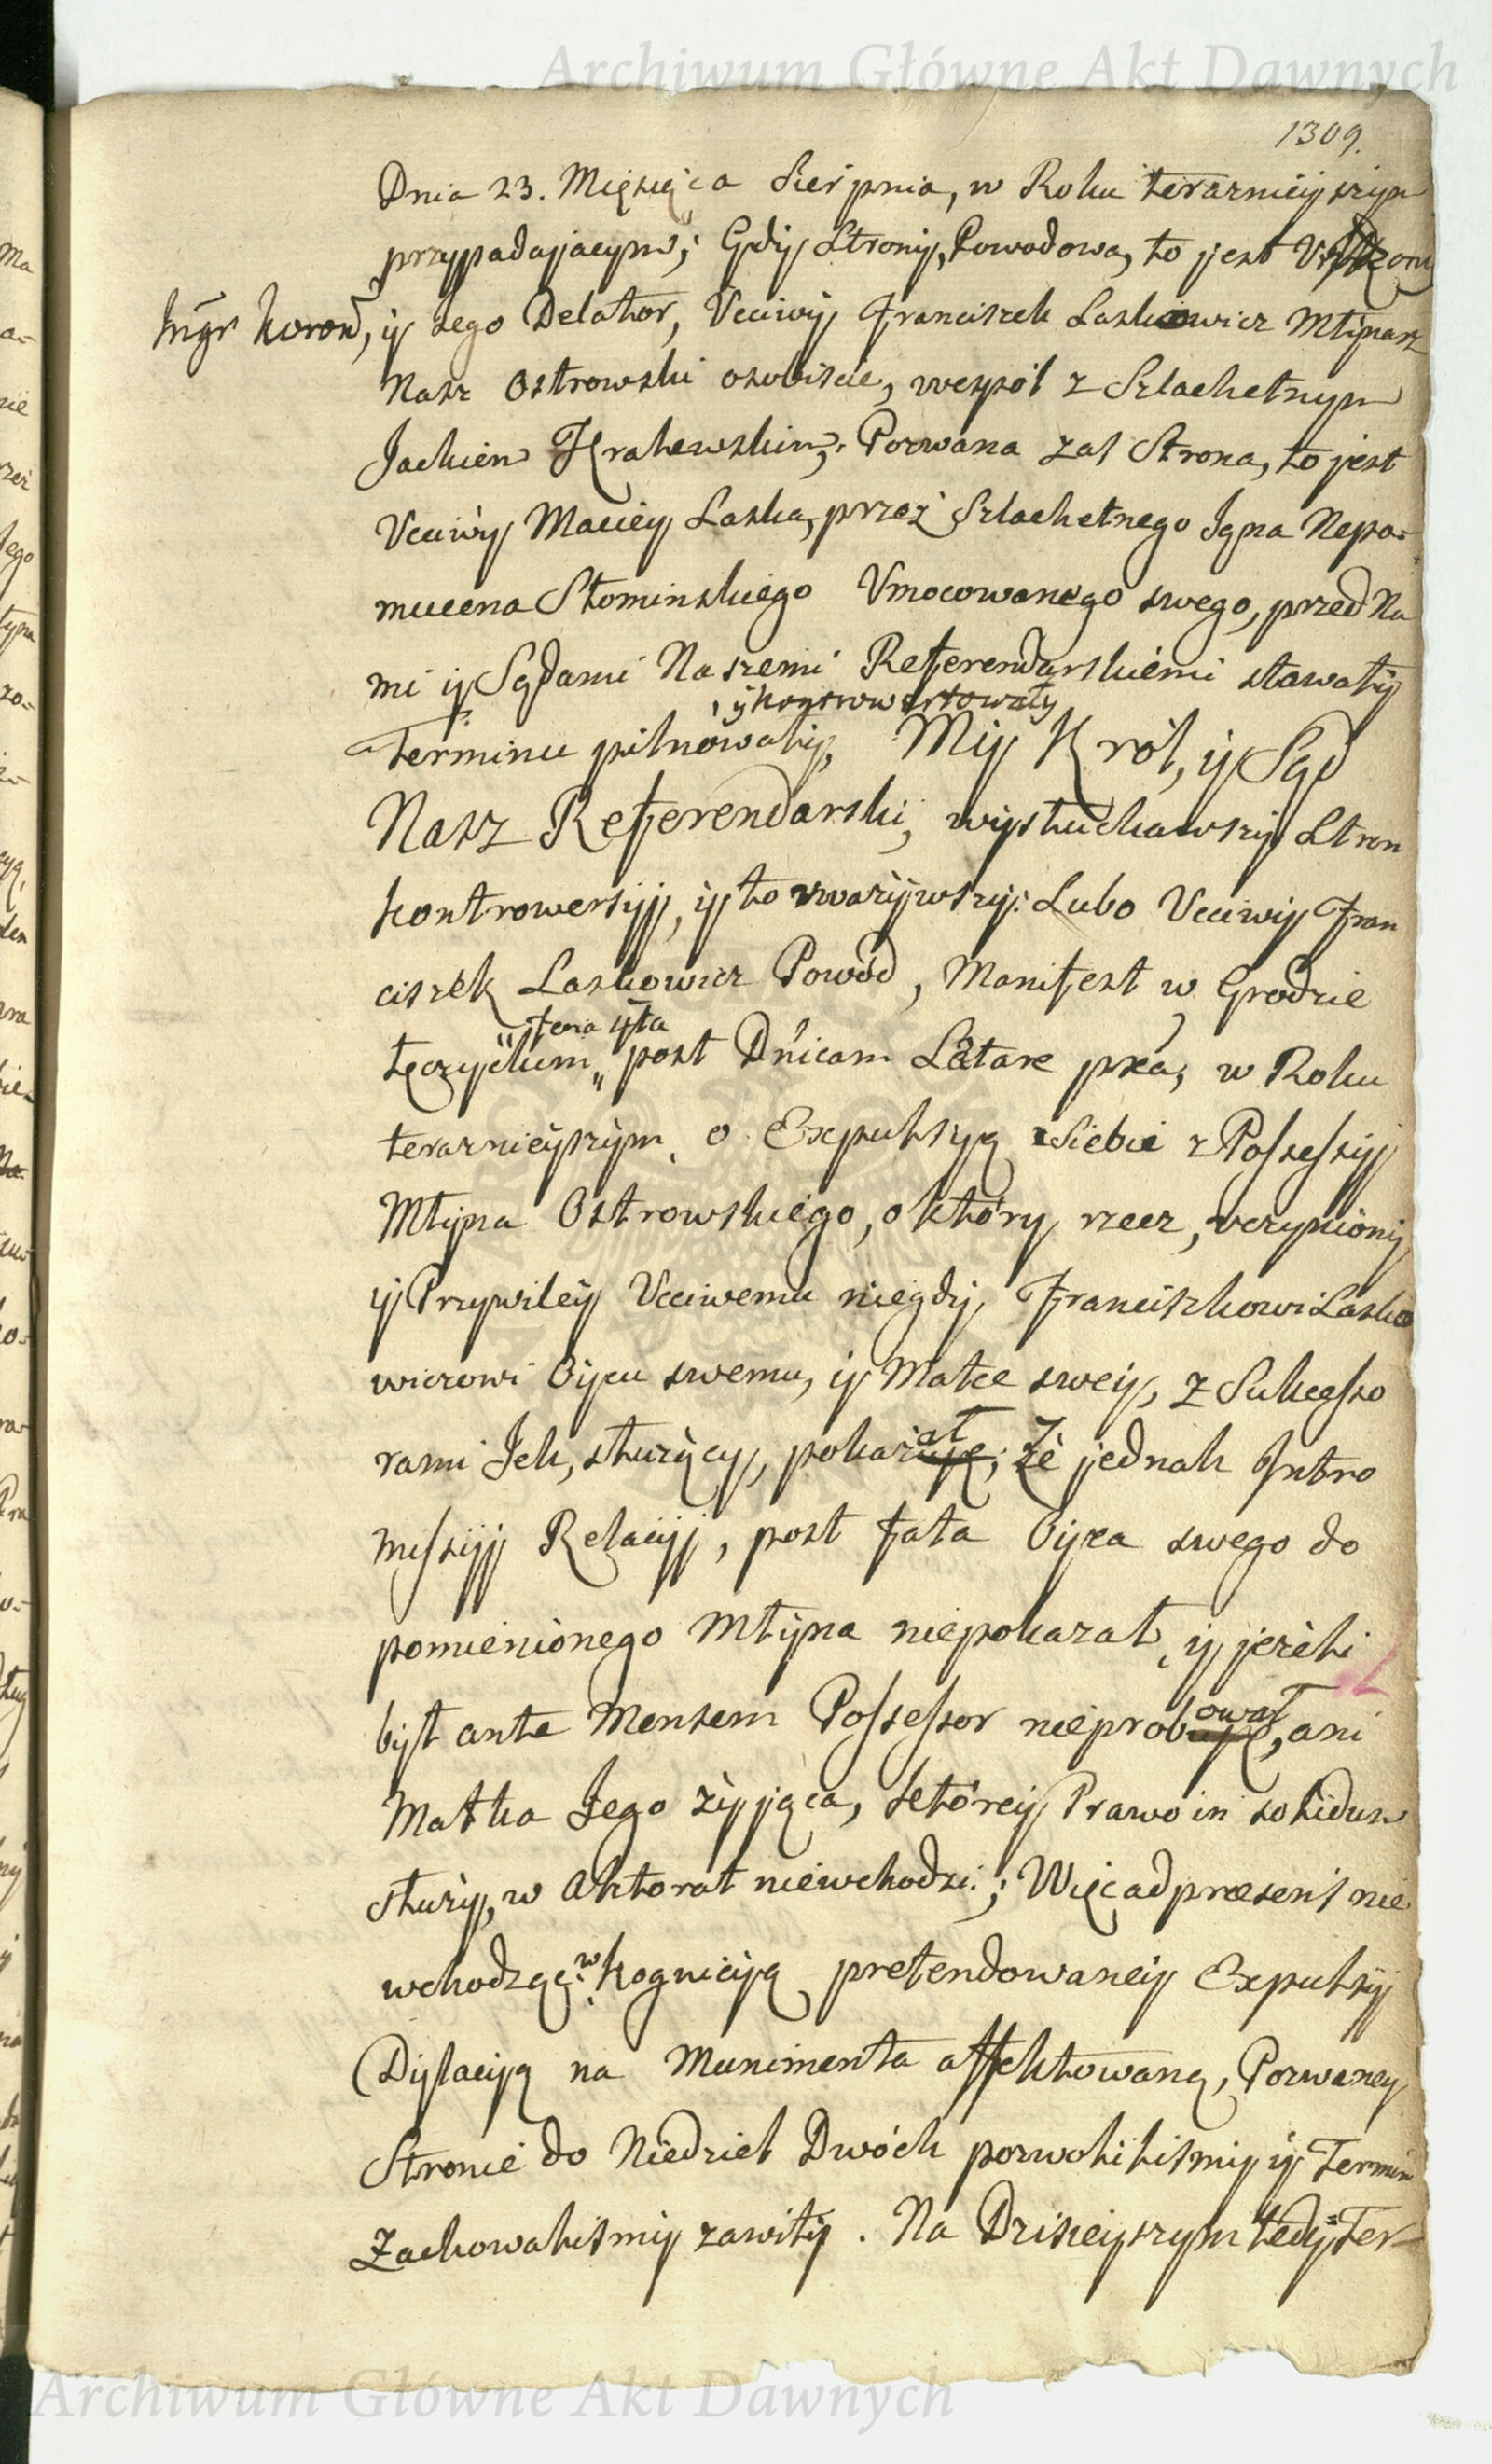 Archiwum Główne Akt Dawnych
1309.
Dnia 23. Miesięca Sierpnia, w Roku terazniéyszym
przypadającym; Gdy Strony, Powodowa, to jest
Insgr Koroń, y Jego Delator, Vcciwy Franciszek Laskowicz Młynarz
Nasz Ostrowski osobiscie, wespół z Szlachetnym
Jackiem Krakewskim; Pozwana zaś Strona, to jest
Vcciwy Maciey Laska, przez Szlachetnego Jgna Nepo-
mucena Słominskiego Vmocowanego swego, przed Na
mi y Sądami Naszemi Referendarskiémi stawały
y kontrowertowały
Terminu pilnowały, My Król, y Sąd
Nasz Referendarski, wysłuchawszy Stron
kontrowersyy, y to vwazywszy: Lubo Vcciwy Fran
ciszek Laskowicz Powód, Manifest w Grodzie
feria 4ta
Łęczyckim post Dnicam Lætare pxa, w Roku
teraznieyszym o Expulsyą Siebie z Possessyy
Młyna Ostrowskiego, o który rzecz, vczyniony
y Przywiley Vcciwemu niegdy Franciszkowi Lasko
wiczowi Oycu swemu, y Matce swey, z Sukcesso
rami Jch, służący, pokazał; Ze jednak Intro
missyy Relacyy, post fata Oyca swego do
pomienionego Młyna niepokazał, y jezeli
był ante Mensem Possessor nieprobował, ani
Matka Jego zyjąca, któréy Prawo in solidum
służy, w Aktorat niewchodzi; Więc ad præsens nie
wchodząc w kognicyą pretendowaney Expulsyy
Dylacyą na Munimenta affektowaną, Pozwaney
Stronie do Niedziel Dwóch pozwoliliśmy y Termin
Zachowaliśmy zawity. Na Dzisieyszym tedy Ter-
Archiwum Główne Akt Dawnych